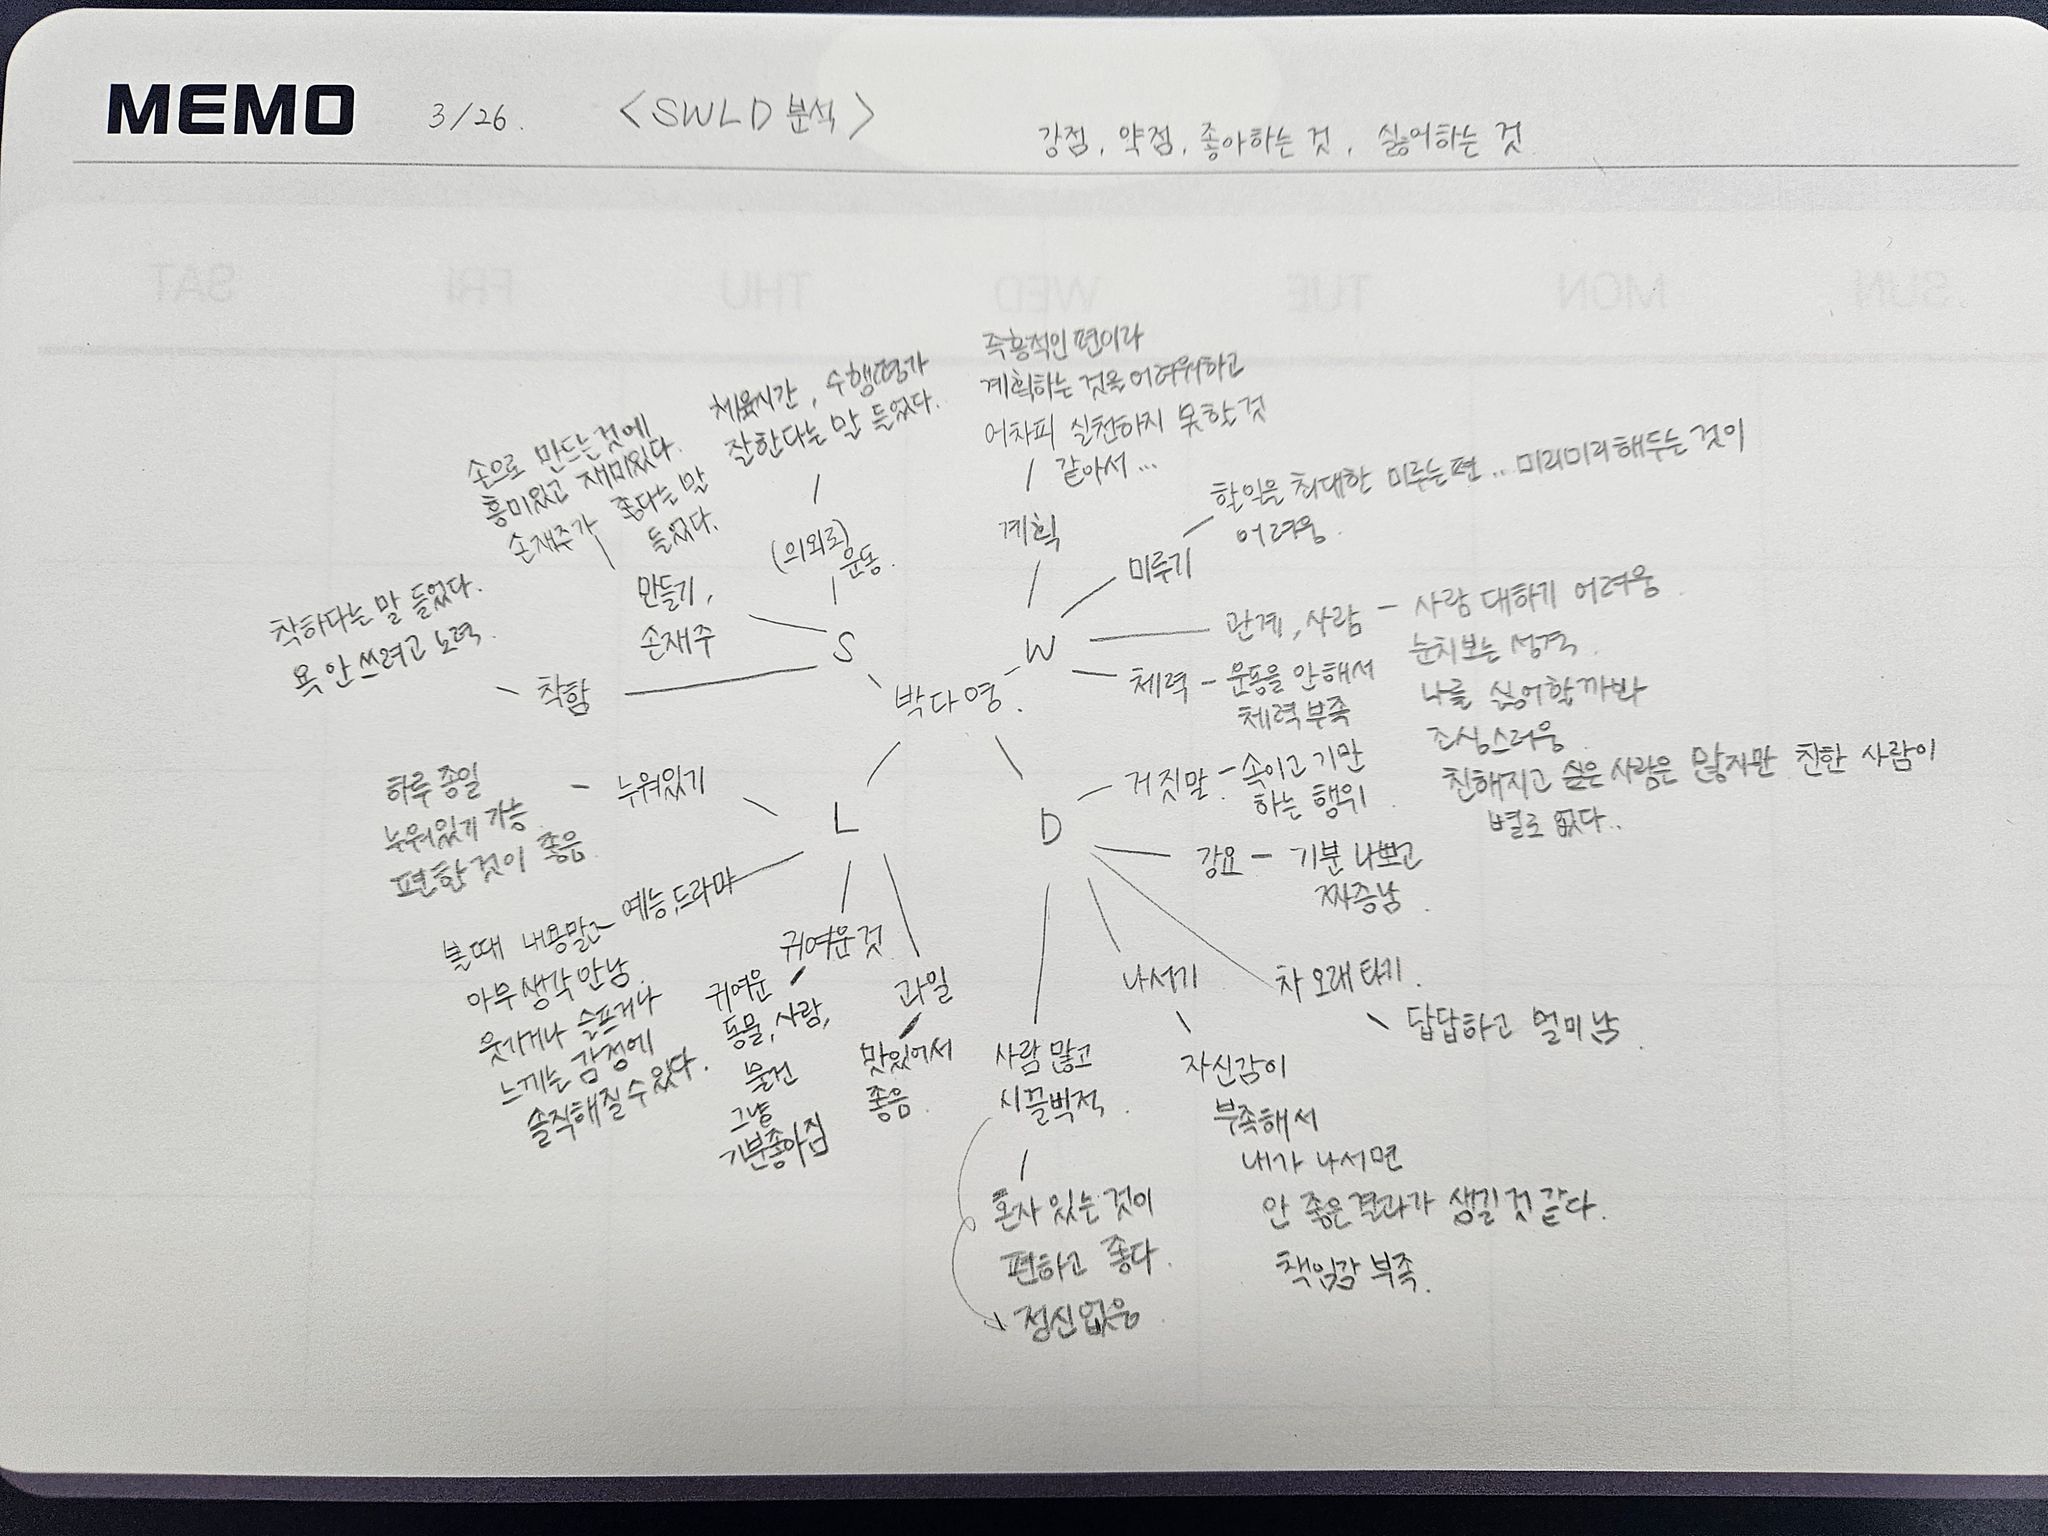 MEMO
3/26.
<SWLD 분석>
강점, 약점, 좋아하는 것, 싫어하는 것
SAT
FRI
THU
WED
TUE
MON
SUN
박다영.
S
(의외로)
운동.
체육시간, 수행평가
잘한다는 말 들었다.
만들기,
손재주
손으로 만드는 것에
흥미있고 재미있다.
손재주가 좋다는 말
들었다.
착함
착하다는 말 들었다.
욕 안 쓰려고 노력.
W
계획
즉흥적인 편이라
계획하는 것을 어려워하고
어차피 실천하지 못할 것
같아서...
미루기
할 일을 최대한 미루는 편... 미리미리 해두는 것이
어려움.
관계, 사람 - 사람 대하기 어려움.
눈치보는 성격.
나를 싫어할까봐
조심스러움.
친해지고 싶은 사람은 많지만 친한 사람이
별로 없다..
체력 - 운동을 안해서
체력 부족
L
누워있기
하루 종일
누워있기 가능
편한 것이 좋음.
예능,드라마
볼 때 내용말고
아무 생각 안남.
웃기거나 슬프거나
느끼는 감정에
솔직해질 수 있다.
귀여운 것
귀여운
동물, 사람,
물건
그냥
기분좋아짐
과일
맛있어서
좋음.
D
거짓말 - 속이고 기만
하는 행위.
강요 - 기분 나쁘고
짜증남.
차 오래 타기.
답답하고 멀미남.
나서기
자신감이
부족해서
내가 나서면
안 좋은 결과가 생길 것 같다.
책임감 부족.
사람 많고
시끌벅적.
혼자 있는 것이
편하고 좋다.
정신없음.